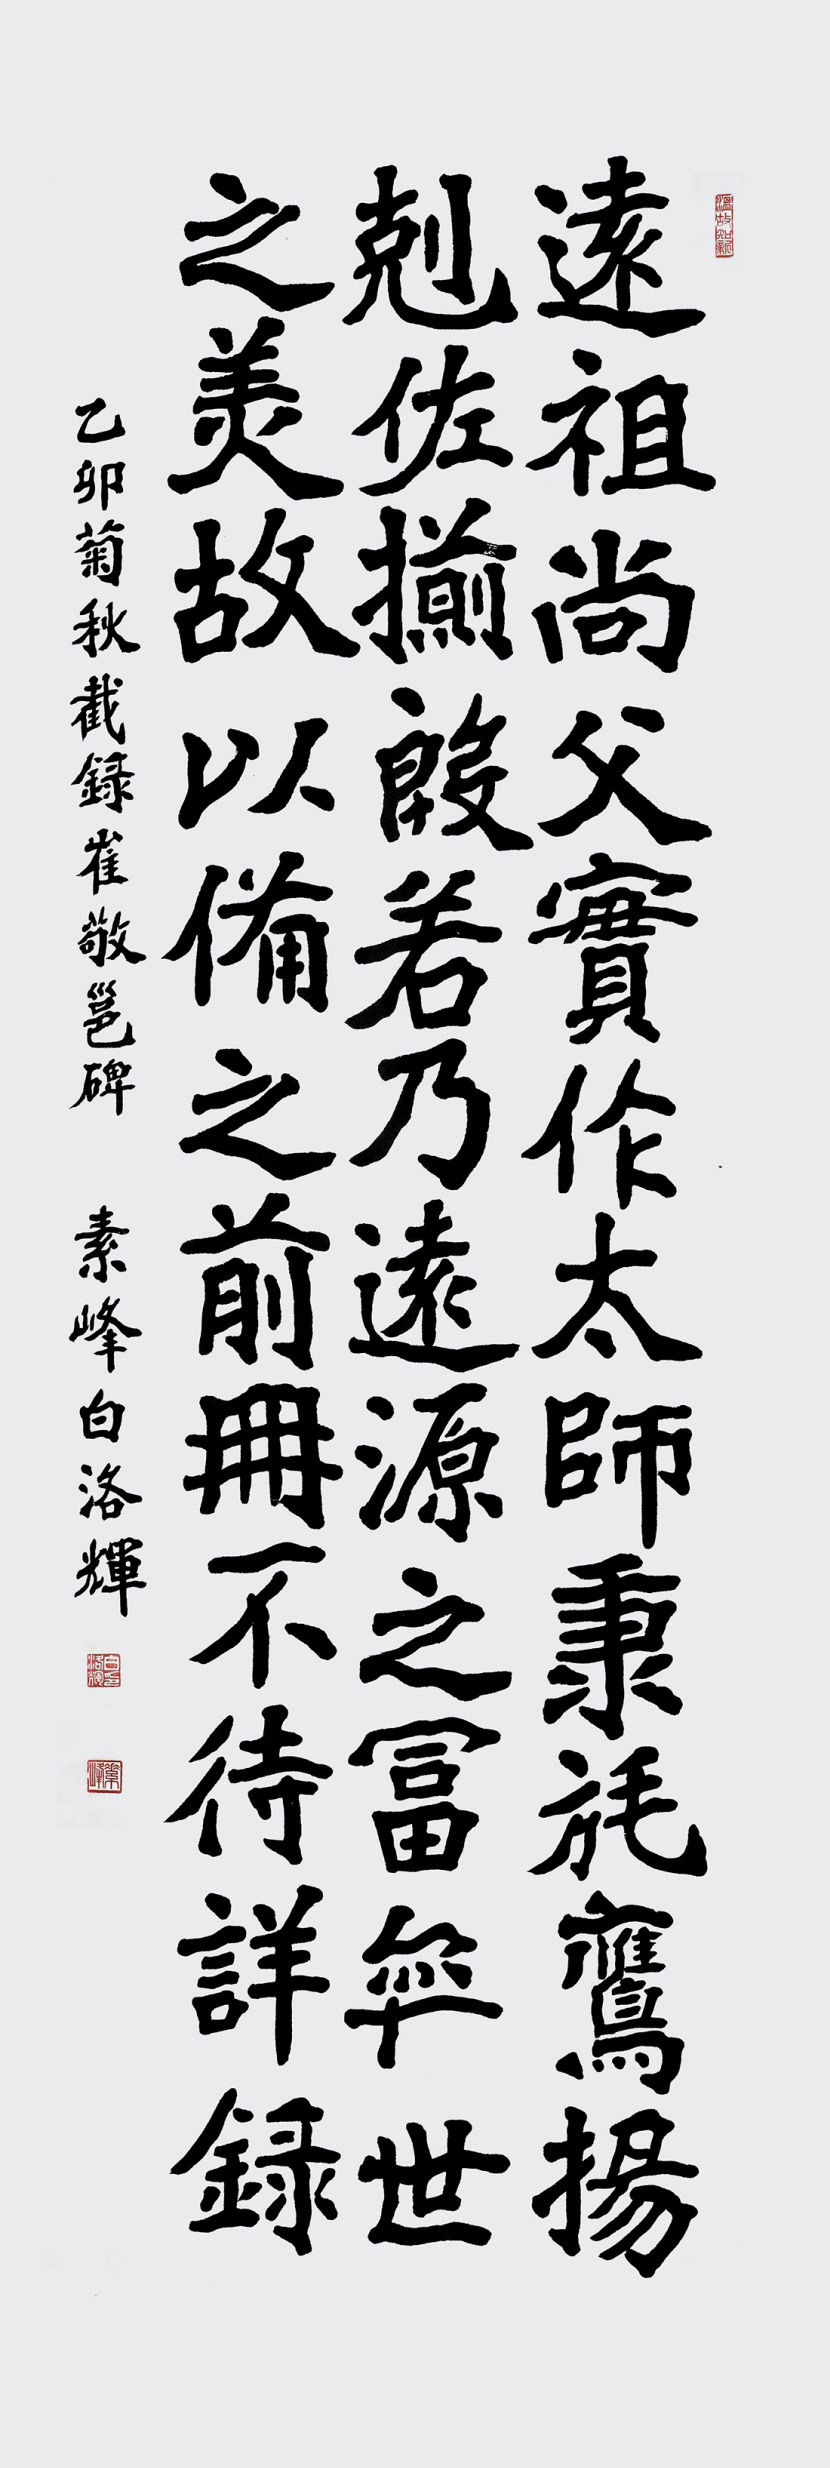 溫故知新
遠祖尚父實作太師秉旄鷹揚
剋佐揃殷若乃遠源之富奕世
之美故以備之前冊不待詳録
乙卯菊秋截録崔敬邕碑 素峰白洛輝
素峰